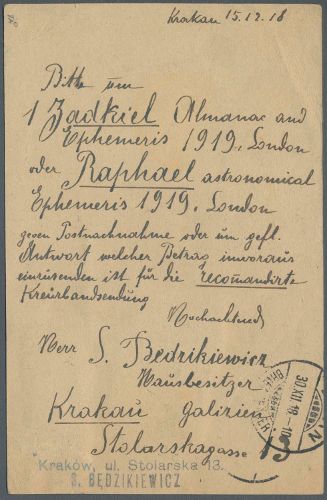 Krakau 15.12.18
Bitte um
1 Zadkiel Almanac and
Ephemeris 1919. London
oder Raphael astronomical
Ephemeris 1919. London
gegen Postnachnahme oder um gefl.
Antwort welcher Betrag imvoraus
einzusenden ist für die recomandirte
Kreuzbandsendung
Hochachtend
Herr S. Będzikiewicz
Hausbesitzer
Krakau Galizien
Stolarskagasse 13
Kraków, ul. Stolarska 13.
S. BĘDZIKIEWICZ
30.XII.18